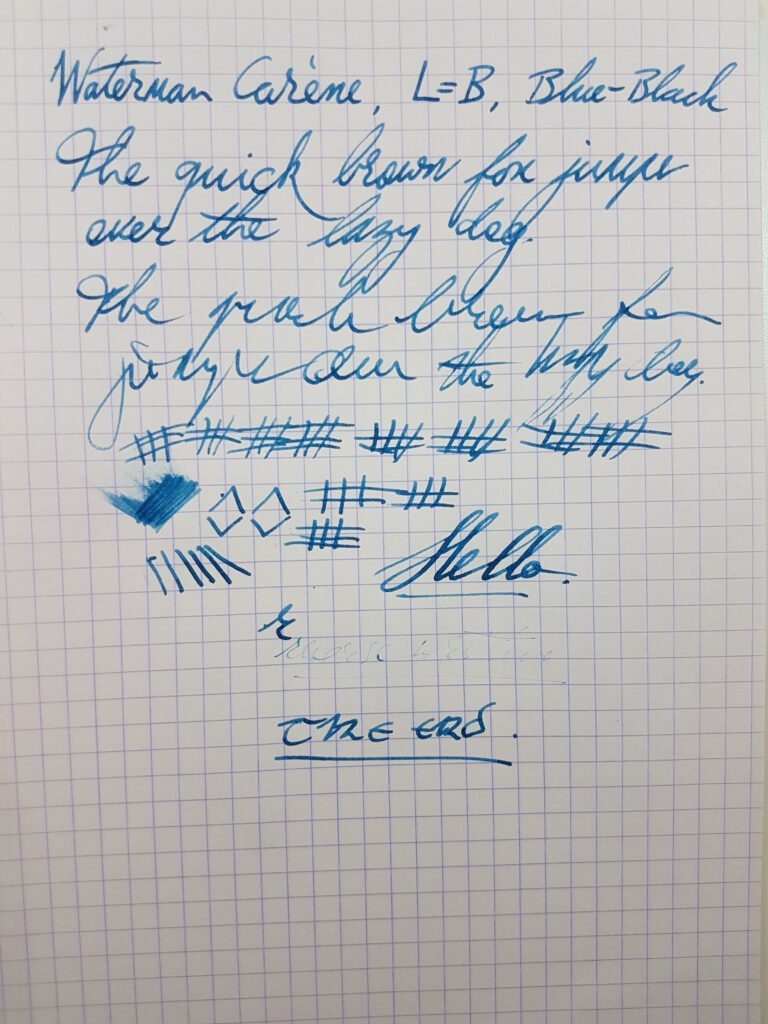 Waterman Carène, L=B, Blue-Black
The quick brown fox jumps
over the lazy dog.
The quick brown fox
jumps over the lazy dog.
Hello.
r
reverse writing
THE END.